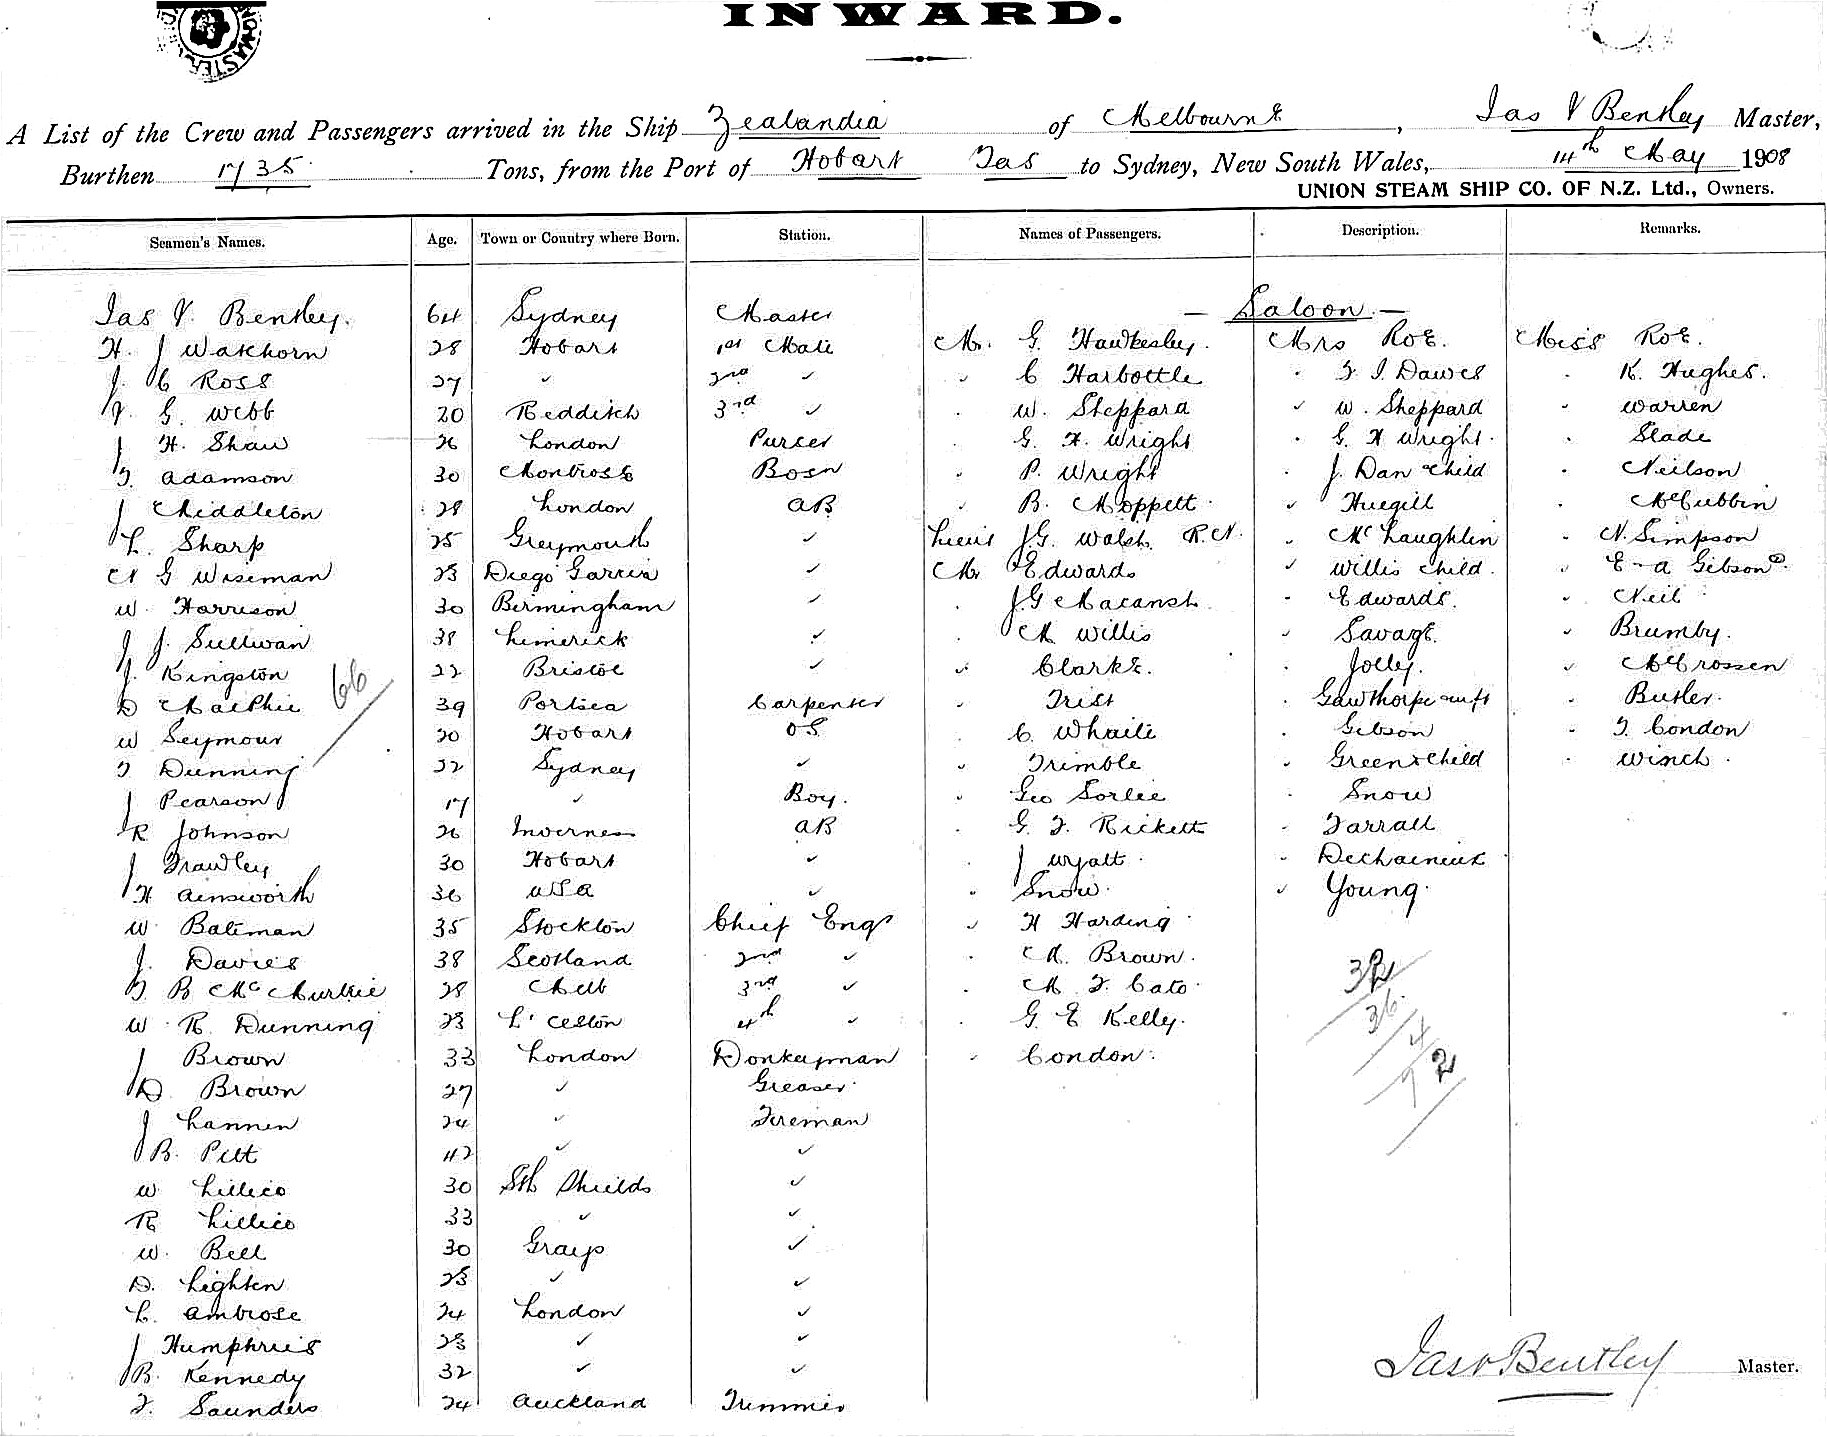 INWARD.
A List of the Crew and Passengers arrived in the Ship Zealandia of Melbourne, Jas V Bentley Master,
Burthen 1735 Tons, from the Port of Hobart Tas to Sydney, New South Wales, 14th May 1908
UNION STEAM SHIP CO. OF N.Z. Ltd., Owners.
Seamen's Names. Age. Town or Country where Born. Station. Names of Passengers. Description. Remarks.
Jas V. Bentley. 64 Sydney Master — Saloon. —
H. J Watchorn 28 Hobart 1st Mate Mr. G. Hawkesley. Mrs Roe. Miss Roe.
J. C Ross 27 " 2nd " " C Harbottle " F. I. Dawes " K. Hughes.
V. G. Webb 20 Redditch 3rd " " W. Sheppard " W. Sheppard " Warren
J H. Shaw 26 London Purser " G. H. Wright " G. H Wright. " Slade
F. Adamson 30 Montrose Bosn " P. Wright " J. Dan Child " Neilson
J Middleton 28 London AB " B. Moppett " Huegill " McCubbin
L. Sharp 25 Greymouth " Lieut J.G. Walsh. R.N. " McLaughlin " N. Simpson
N G Wiseman 23 Diego Garcia " Mr Edwards " Willis Child. " E - A Gibson
W. Harrison 30 Birmingham " " J.G Macansh. " Edwards. " Neil
J J. Sullivan 38 Limerick " " M Willis " Savage. " Brumby.
J. Kingston 22 Bristol " " Clarke. " Jolley. " McCrossen
D MacPhie 39 Portsea Carpenter " Trist " Gawthorpe & inft " Butler.
66
W Seymour 20 Hobart OS " C. Whaite " Gibson " F. Condon
F Dunning 32 Sydney " " Trimble " Green & Child " Winch.
J Pearson 17 " Boy. " Geo Sorlie " Snow
R Johnson 26 Inverness AB " G. F. Rickett " Farrall
J Frawley 30 Hobart " " J Wyatt. " Dechaineux
H Ainsworth 36 USA " " Snow. " Young.
W. Bateman 35 Stockton Chief Engr " H Harding
J. Davies 38 Scotland 2nd " " A. Brown.
F. B McMurtrie 28 Melb 3rd " " M. F. Cato
W. R. Dunning 23 L'ceston 4th " " G. E Kelly.
J Brown 33 London Donkeyman " Condon.
36
4
72
D. Brown 27 " Greaser.
J Lannen 24 " Fireman
B. Pitt 42 " "
W Lillico 30 Sth Shields "
R Lillico 33 " "
W. Bell 30 Grays "
D. Lighten 23 " "
L. Ambrose 24 London "
J Humphries 23 " "
B. Kennedy 32 " "
F. Saunders 24 Auckland Trimmer
Jas V Bentley Master.